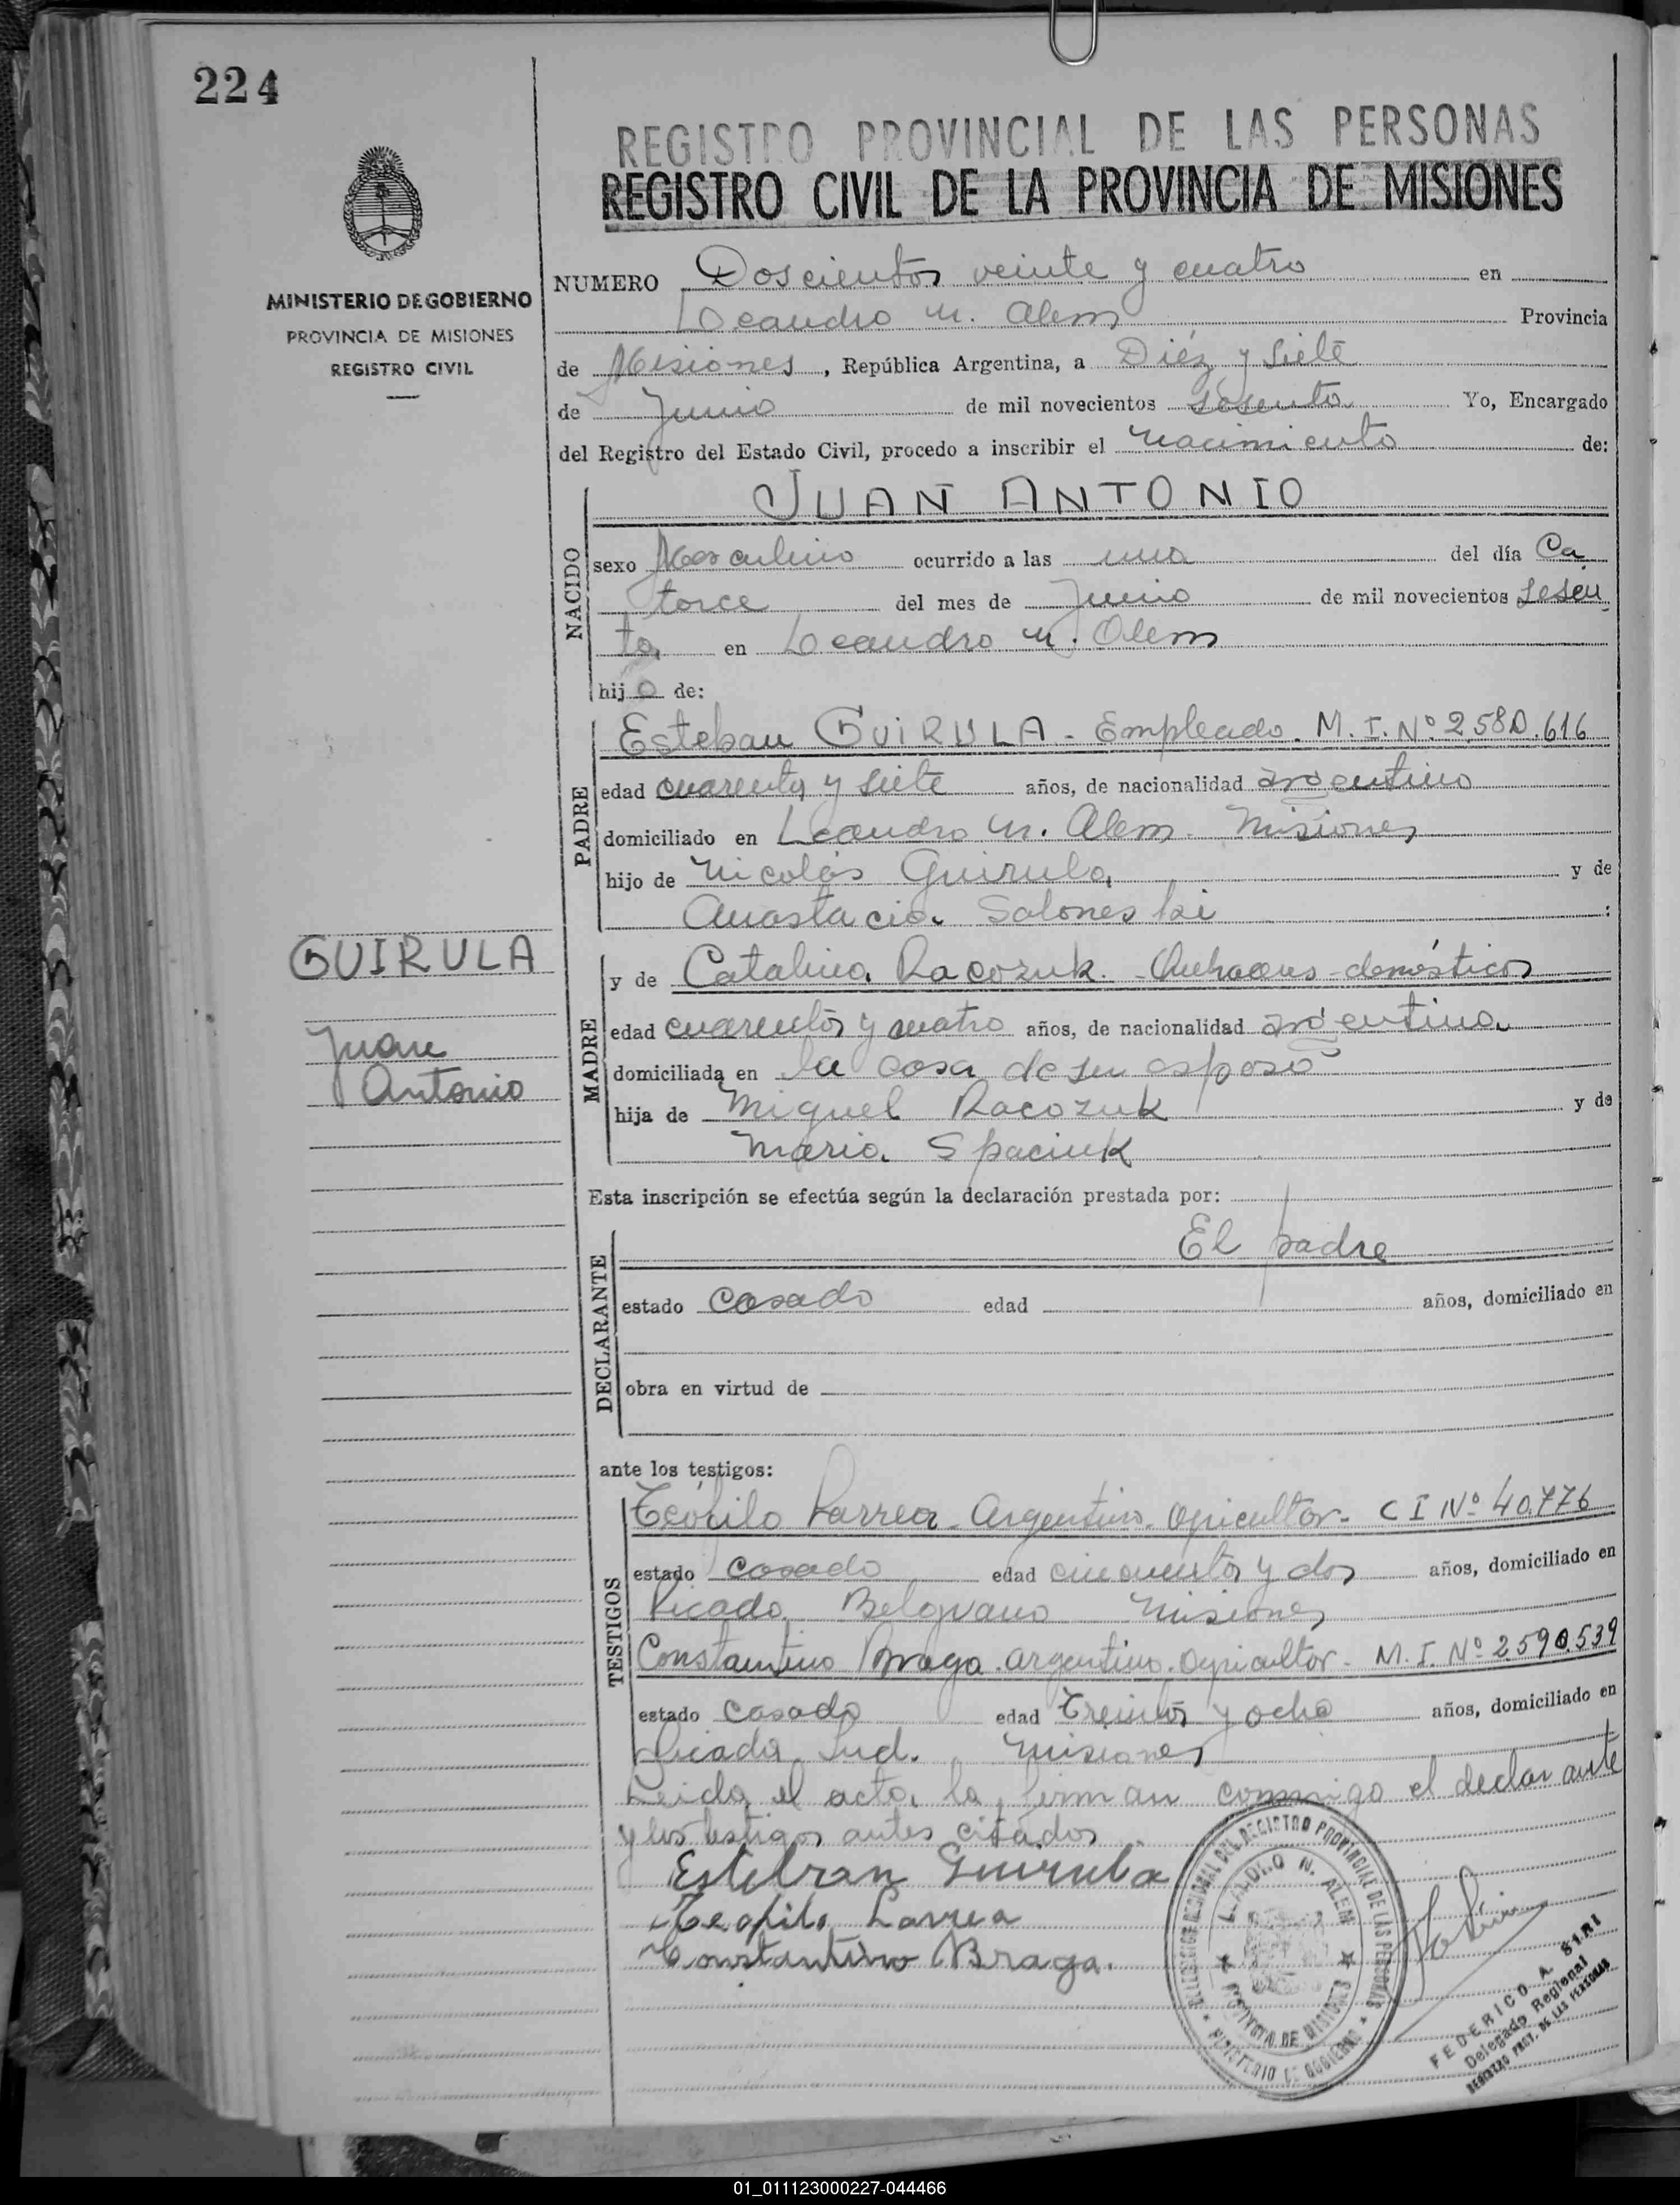 224
REGISTRO PROVINCIAL DE LAS PERSONAS
REGISTRO CIVIL DE LA PROVINCIA DE MISIONES
MINISTERIO DE GOBIERNO
PROVINCIA DE MISIONES
REGISTRO CIVIL
NUMERO Doscientos veinte y cuatro en
Leandro N. Alem Provincia
de Misiones, República Argentina, a Diéz y Siete
de Junio de mil novecientos Sesenta Yo, Encargado
del Registro del Estado Civil, procedo a inscribir el nacimiento de:
NACIDO
JUAN ANTONIO
sexo Masculino ocurrido a las una del día Ca
torce del mes de Junio de mil novecientos Sesen
ta, en Leandro N. Alem
hijo de:
PADRE
Esteban GUIRULA - Empleado. M. I. Nº 2,580.616
edad cuarenta y siete años, de nacionalidad argentino
domiciliado en Leandro N. Alem. Misiones
hijo de Nicolás Guirula y de
Anastacia Saloneski :
GUIRULA
Juan
Antonio
MADRE
y de Catalina Racozuk. - domésticos
edad cuarenta y cuatro años, de nacionalidad argentina
domiciliada en la casa de su esposo
hija de Miguel Racozuk y de
Maria Spaciuk
Esta inscripción se efectúa según la declaración prestada por:
DECLARANTE
El padre
estado casado edad años, domiciliado en
obra en virtud de
ante los testigos:
TESTIGOS
Teófilo Larrea - Argentino - agricultor - C I Nº 40.776
estado casado edad cincuenta y dos años, domiciliado en
Picada Belgrano Misiones
Constantino Braga. argentino. agricultor - M. I. Nº 2.590.539
estado casado edad treinta y ocho años, domiciliado en
Picada Sud. Misiones
Leida el acta, la firman conmigo el declarante
y los testigos antes citados
Esteban Guirula
Teofilo Larrea
Constantino Braga.
DELEGACION REGIONAL DEL REGISTRO PROVINCIAL DE LAS PERSONAS
LEANDRO N. ALEM
PROVINCIA DE MISIONES
MINISTERIO DE GOBIERNO
FEDERICO A. SIRI
Delegado Regional
REGISTRO PROV. DE LAS PERSONAS
01_011123000227-044466